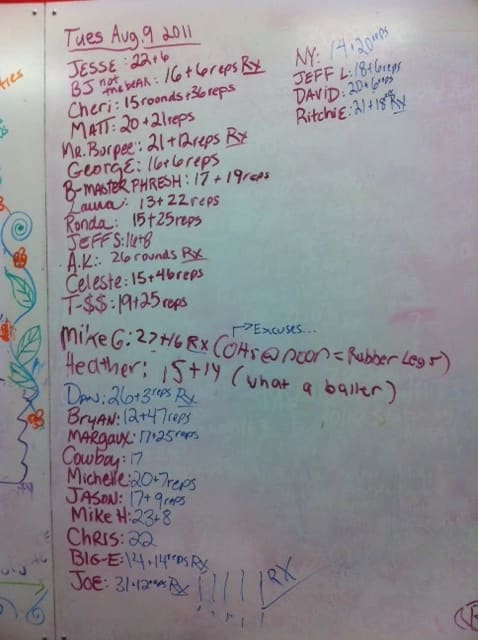 Tues Aug. 9 2011
JESSE: 22+6
BJ not the bear: 16+6reps Rx
Cheri: 15rounds+36reps
MATT: 20+21reps
Mr. Burpee: 21+12reps Rx
George: 16+6reps
B-MASTER PHRESH: 17+19reps
Laura: 13+22reps
Ronda: 15+25reps
JEFF S: 16+8
A.K.: 26rounds Rx
Celeste: 15+46reps
T-$$: 19+25reps
Mike G: 27+16 Rx (OHS @ noon = Rubber Legs)
Excuses...
Heather: 15+14 (what a baller)
DAN: 26+3reps Rx
BRYAN: 12+47reps
MARGAUX: 17+25reps
Cowboy: 17
Michelle: 20+7reps
JASON: 17+9reps
Mike H: 23+8
CHRIS: 22
BIG-E: 14+14reps Rx
JOE: 31+12reps Rx
RX
NY: 14+20reps
JEFF L: 18+6reps
DAVID: 20+6reps
Ritchie: 21+18 Rx
ties